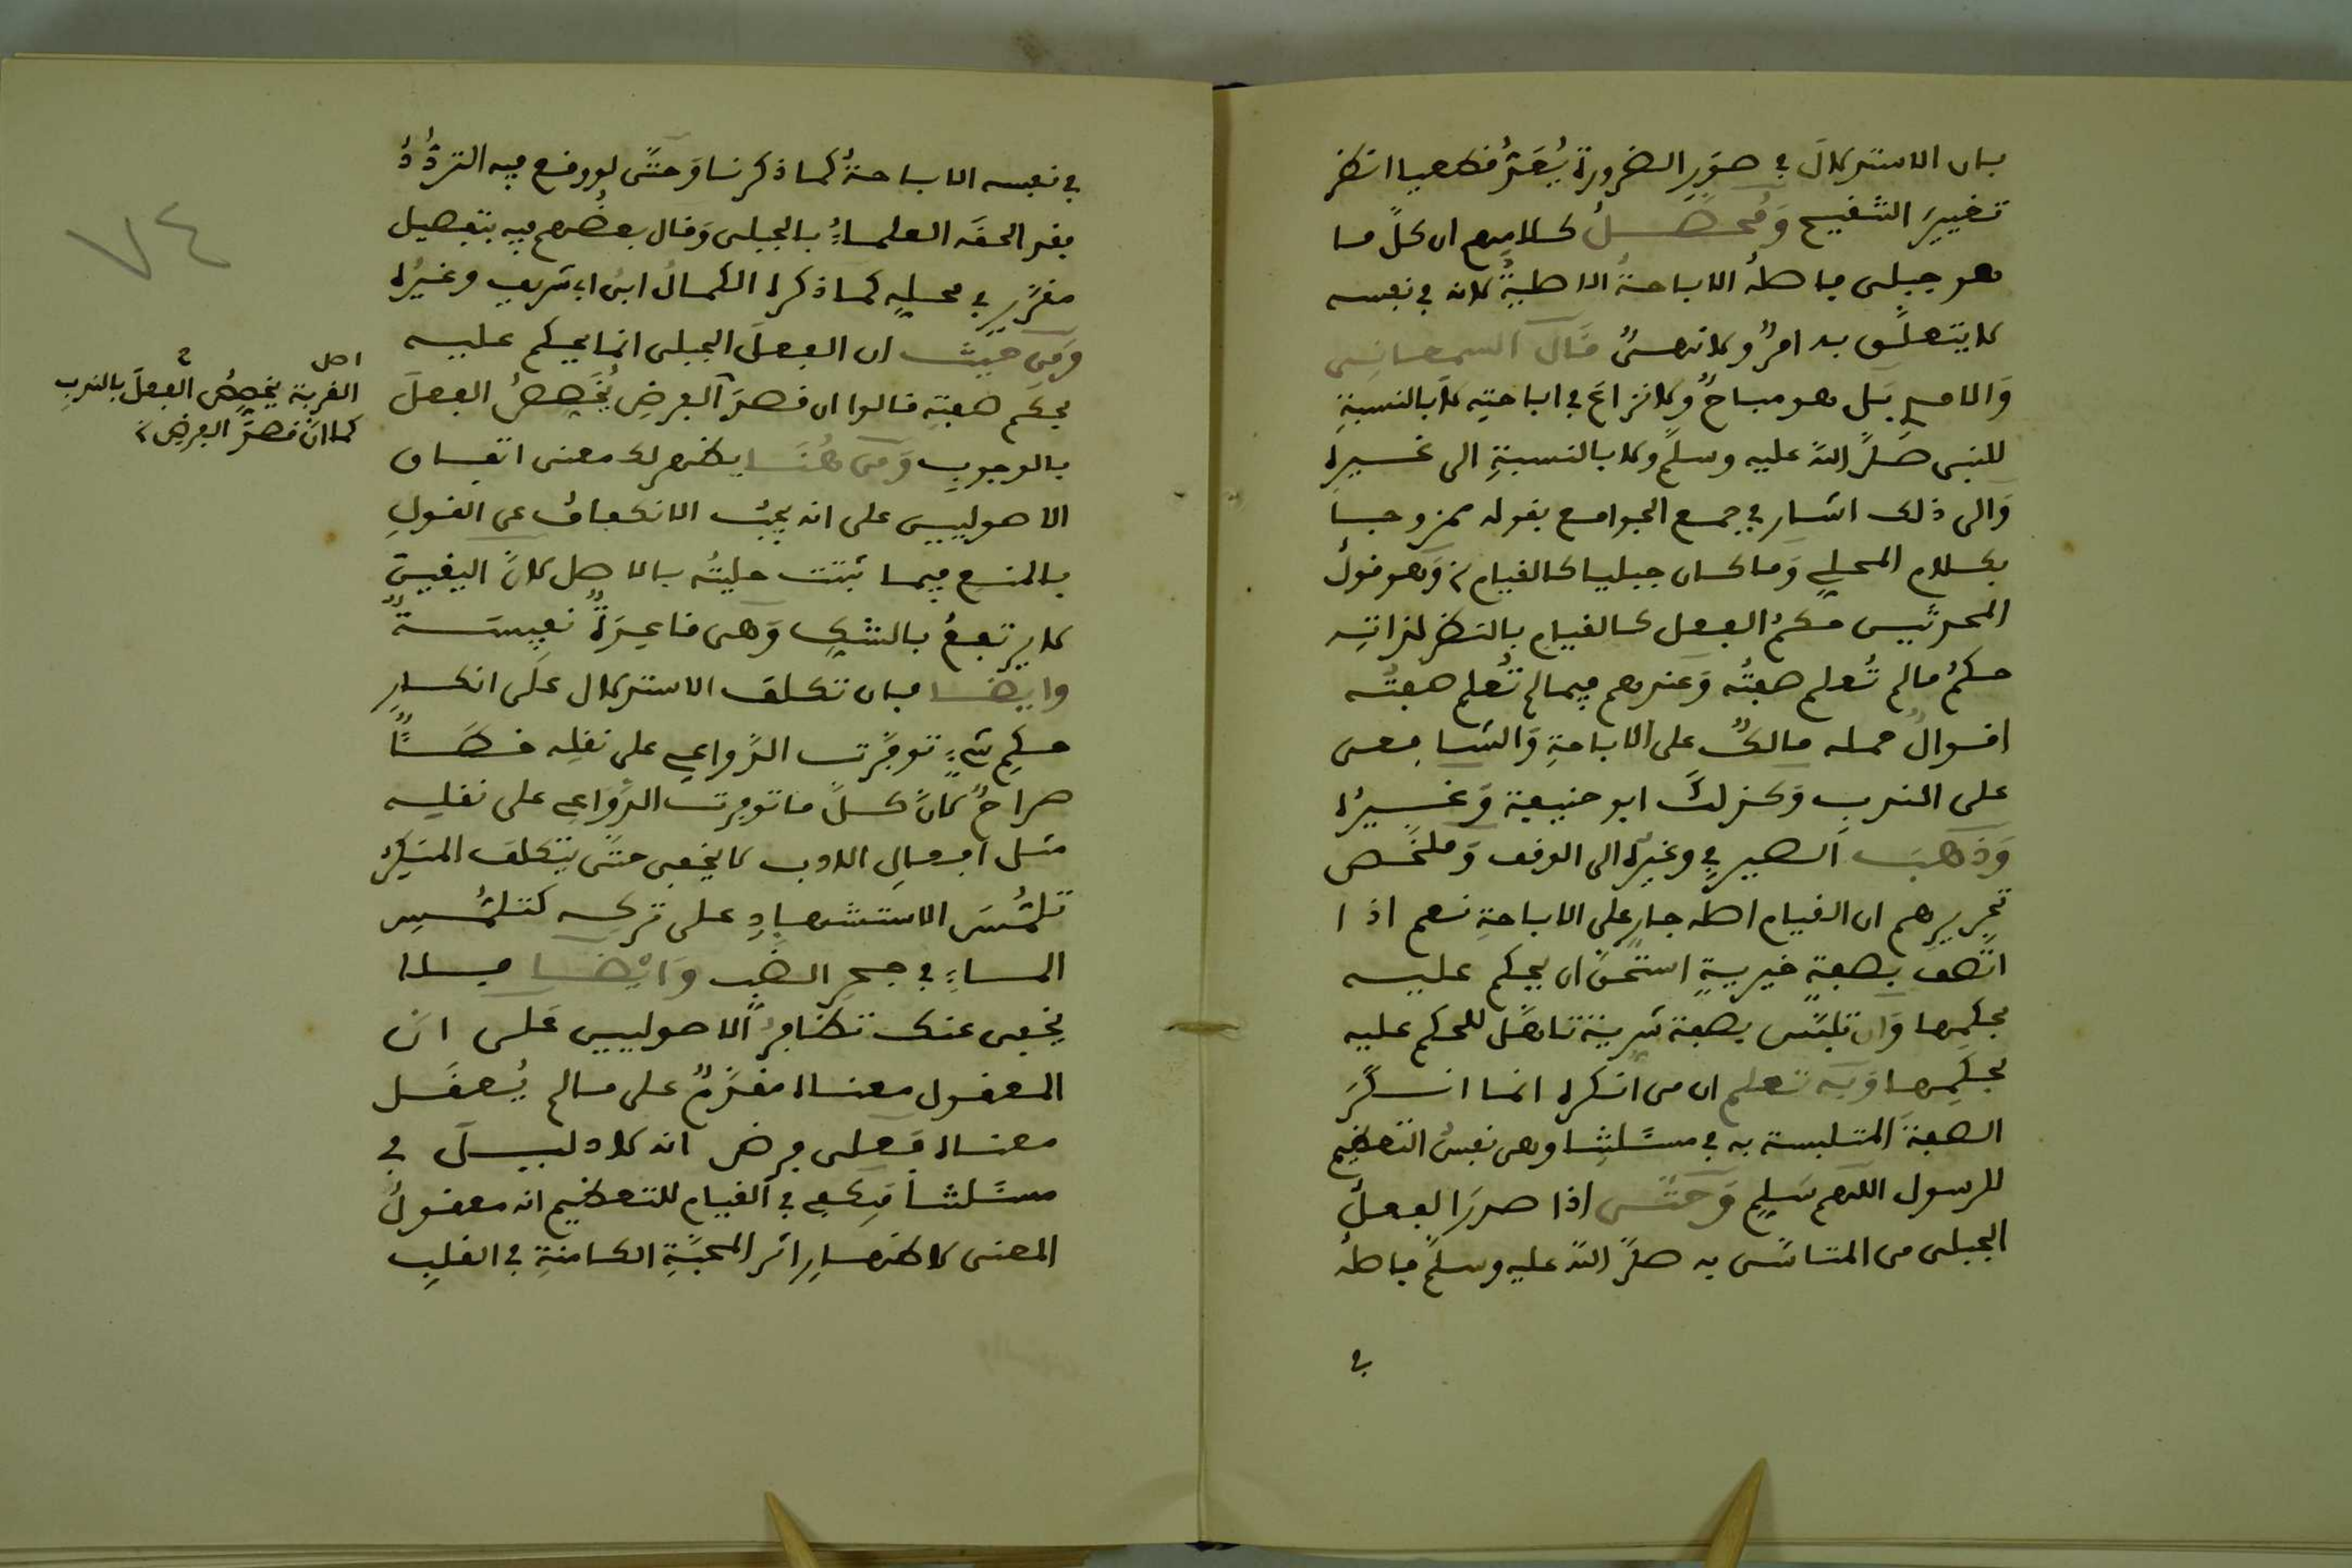 بان الاستدلال في صور الضرورة يُعَدُّ قطعيا انظر
تغيير التنقيح وَمُحَصَّلُ كلامهم ان كلَّ ما
هو جبلى فاصلُه الاباحةُ الاصليةُ لانه في نفسه
لا يتعلَّق به امرٌ ولا نهىٌ قال السمعانى
وَالامدي بَل هو مباحٌ ولا نزاعَ في اباحتِه لا بالنسبةِ
للنبى صَلَّى اللهُ عليه وسلَّم ولا بالنسبةِ الى غيره
وَالى ذلك اشار في جمع الجوامع بقوله ممزوجا
بكلام المحلي وَما كان جبليا كالقيام وَهو قولُ
المحدثين حكمُ الفعل كالقيام بالنظر لذاتِه
حكمُ ما لم تُعلم صفتُه وَعندهم فيما لم تُعلم صفتُه
اقوالٌ حمله مالكٌ على الاباحةِ وَالشافعى
على الندب وَكذلك ابو حنيفة وَغيرُه
وَذهبَ الصيرفي وغيرُه الى الوقف وَملخَّص
تحريرهم ان القيام اصله جارٍ على الاباحةِ نعم اذا
اتَّصفَ بصفةٍ خيريةٍ استحقَّ ان يحكم عليه
بحكمِها وَان تلبَّس بصفة شرية تاهَّل للحكم عليه
بحكمِها وَبه تعلم ان من انكره انما انكَرَ
الصفةَ المتلبسة به في مسئلتِنا وهى نفسُ التعظيم
للرسول اللهم سَلِّم وَحتَّى اذا صدرَ الفعلُ
الجبلى من المتاسَّى به صلَّى اللهُ عليه وسلَّم فاصلُه
في
في نفسه الاباحةُ كما ذكرنا وَحتَّى لو وقع فيه التردُّدُ
فقد الحقَه العلماءُ بالجبلى وَقال بعضُهم فيه بتفصيل
مقرَّرٍ في محلِه كما ذكره الكمالُ ابنُ ابى شريف وغيرُه
وَمن حيث ان الفعلَ الجبلى انما يحكم عليه
بحكم صفتِه قالوا ان قصدَ الفرضِ يُخَصِّصُ الفعلَ
بالوجوب وَمن هُنَا يظهر لك معنى اتفاق
الاصوليين على انه يجبُ الانكفافُ عن القولِ
بالمنع فيما ثبتت حليتُه بالاصل لانَّ اليقينَ
لا يرتفعُ بالشكِ وَهى قاعدةٌ نفيسةٌ
وايضا فان تكلف الاستدلال عَلى انكارِ
حكمِ شيءٍ توفَّرت الدَّواعي على نقلِه خطأٌ
صراحٌ لانَّ كلَّ ما توفرت الدَّواعي على نقلِه
مثل افعالِ الادب لا يخفى حتَّى يتكلف المنكرُ
تلمُّسَ الاستشهادِ على تركِه كتلمُّسِ
الماءِ في جحرِ الضَّب وَايضًا فلا
يخفى عنك تظافرُ الاصوليين عَلى ان
المعقول معناه مقدَّمٌ على ما لم يُعقَل
معناه فعلى فرض انه لا دليلَ في
مسئلتنا فيكفي في القيام للتعظيم انه معقولُ
المعنى لاظهارِ اثر المحبَّةِ الكامنةِ في القلبِ
٧٤
اصل
القربة يخصِّصُ الفعلَ بالندبِ
كما انَّ قصدَ الفرضِ